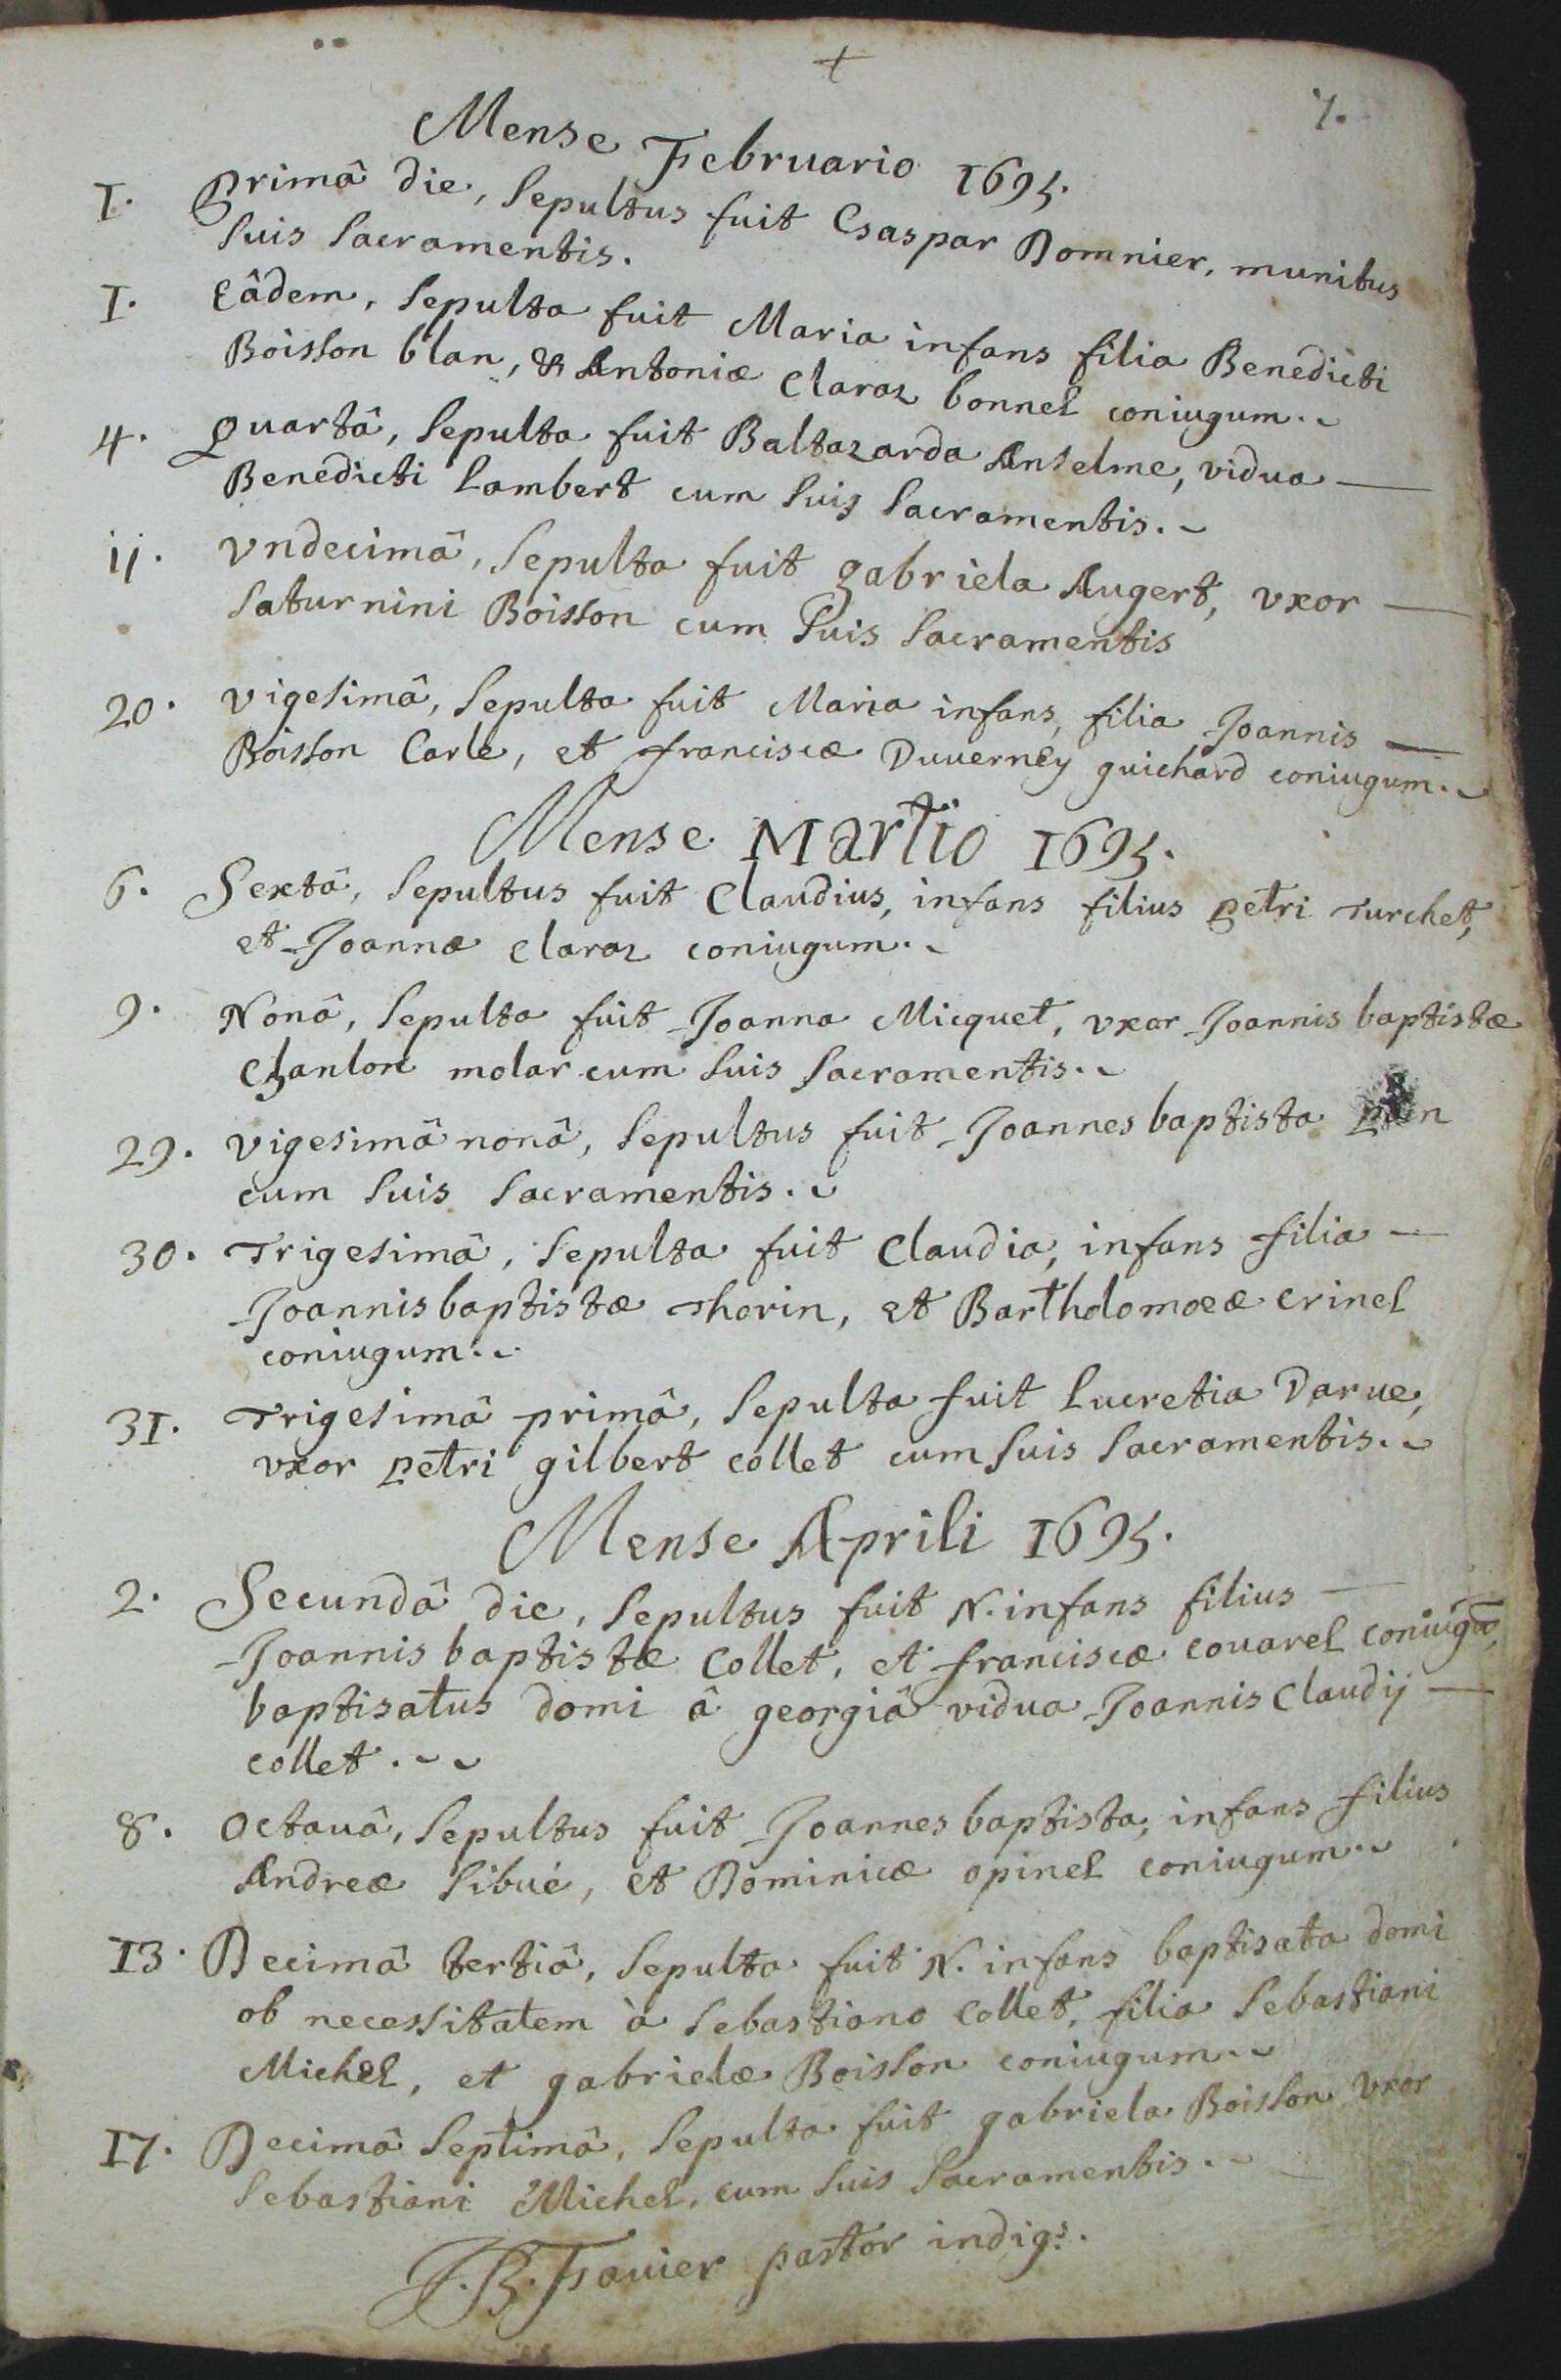 +
7.
Mense Februario 1695.
1. Primâ die, sepultus fuit Gaspar Domnier, munitus
suis sacramentis.
1. Eâdem, sepulta fuit Maria infans filia Benedicti
Boisson blan, & Antoniæ Claraz bonnel coniugum.
4. Quartâ, sepulta fuit Baltazarda Anselme, vidua
Benedicti Lambert cum suis sacramentis.
11. Vndecimâ, sepulta fuit gabriela Augert, vxor
Saturnini Boisson cum suis sacramentis
20. Vigesimâ, sepulta fuit Maria infans, filia Joannis
Boisson Carle, et franciscæ Duuerney guichard coniugum.
Mense Martio 1695.
6. Sextâ, sepultus fuit Claudius, infans filius petri Turchet,
et Joannæ Claraz coniugum.
9. Nonâ, sepulta fuit Joanna Micquet, vxor Joannis baptistæ
Chanlon molar cum suis sacramentis.
29. Vigesimâ nonâ, sepultus fuit Joannes baptista
cum suis sacramentis.
30. Trigesimâ, sepulta fuit Claudia, infans filia
Joannis baptistæ Thorin, et Bartholomoeæ crinel
coniugum.
31. Trigesimâ primâ, sepulta fuit Lucretia Darue,
vxor petri gilbert collet cum suis sacramentis.
Mense Aprili 1695.
2. Secundâ die, sepultus fuit N. infans filius
Joannis baptistæ Collet, et franciscæ couarel coniugũ,
baptisatus domi â georgiâ vidua Joannis Claudij
collet.
8. Octauâ, sepultus fuit Joannes baptista, infans filius
Andreæ Sibué, et Dominicæ opinel coniugum.
13. Decimâ tertiâ, sepulta fuit N. infans baptisata domi
ob necessitatem à Sebastiano Collet, filia Sebastiani
Michel, et gabrielæ Boisson coniugum.
17. Decimâ septimâ, sepulta fuit gabriela Boisson vxor
Sebastiani Michel, cum suis sacramentis.
J.B. Fauier pastor indig.s